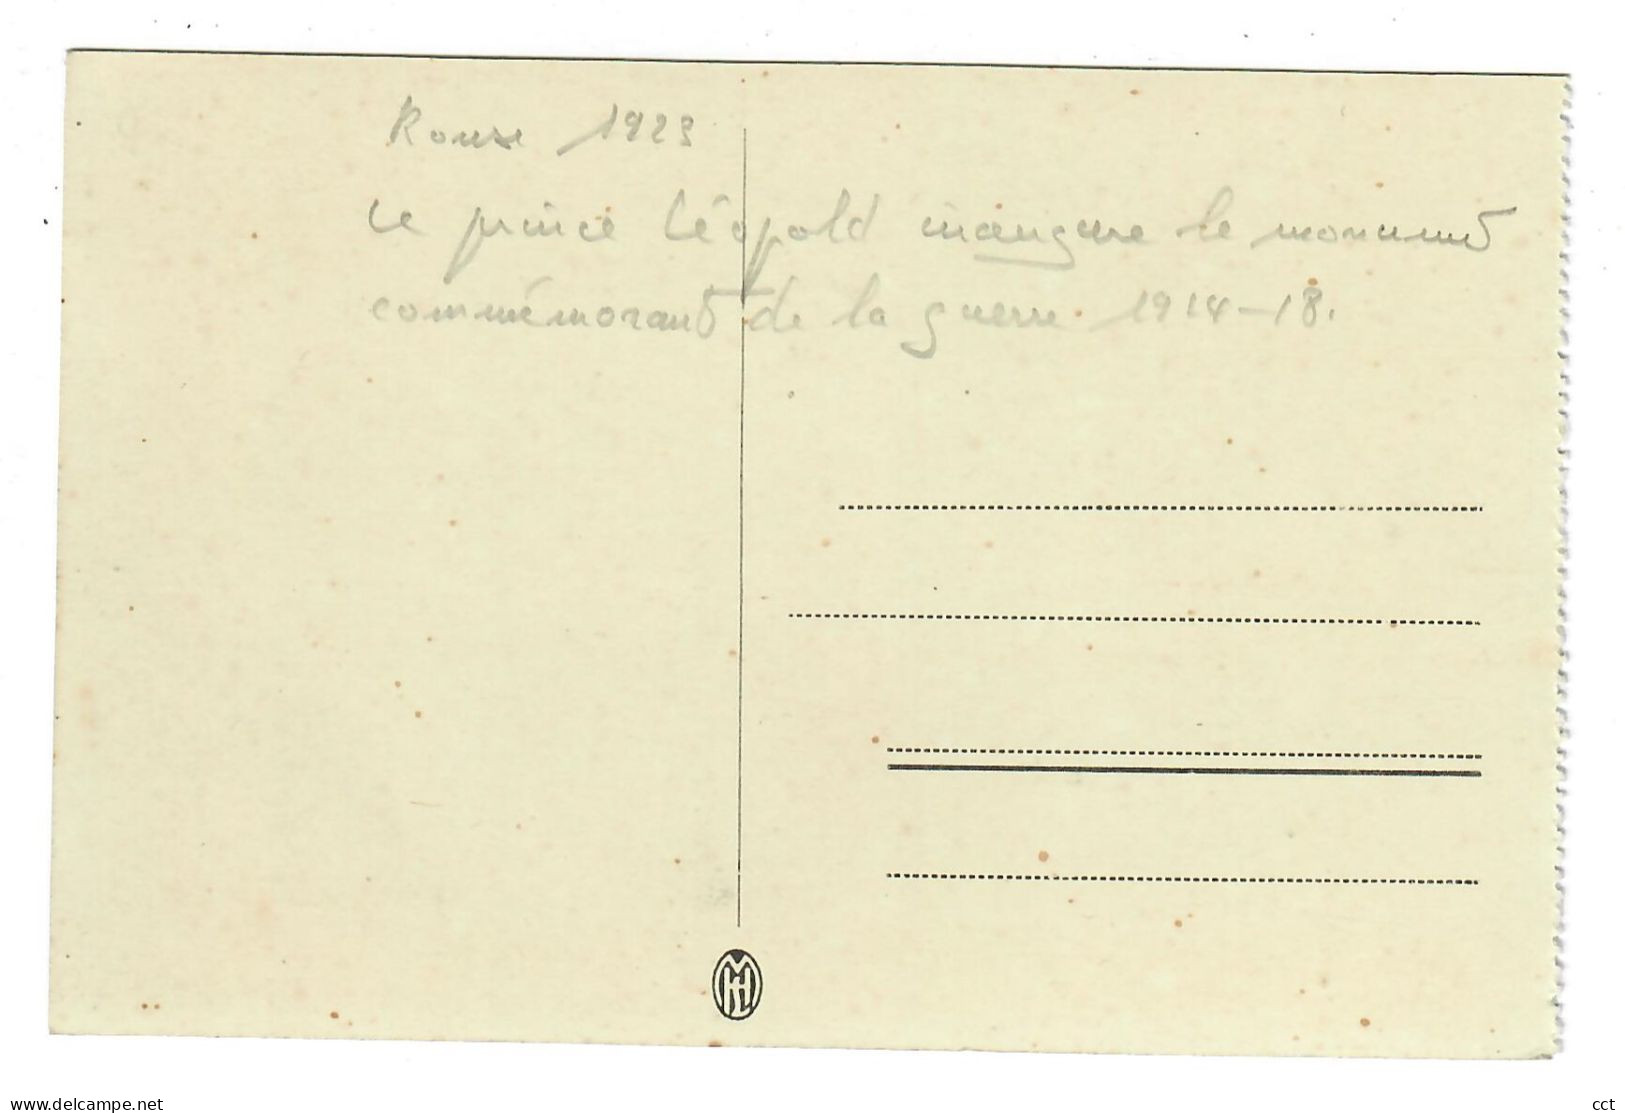 Ronse 1923
Le prince Léopold inaugure le monument
commémorant de la guerre 1914-18.
www.delcampe.net
cct